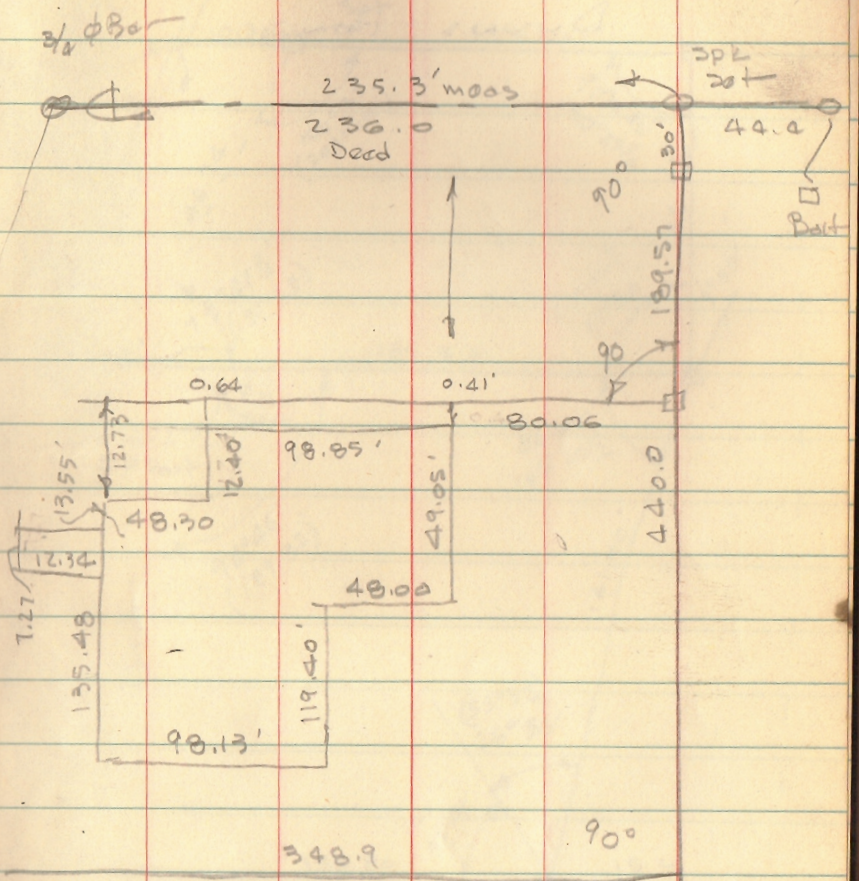 3/4 ϕ Bar
spk
set
235.3' meas
236.0
Deed
44.4
30'
90°
Bolt
189.57
90
0.64
0.41'
80.06
12.73
98.85'
12.40'
13.55'
48.30
49.05'
440.0
12.34
7.27
48.00
135.48
119.40'
98.13'
90°
348.9